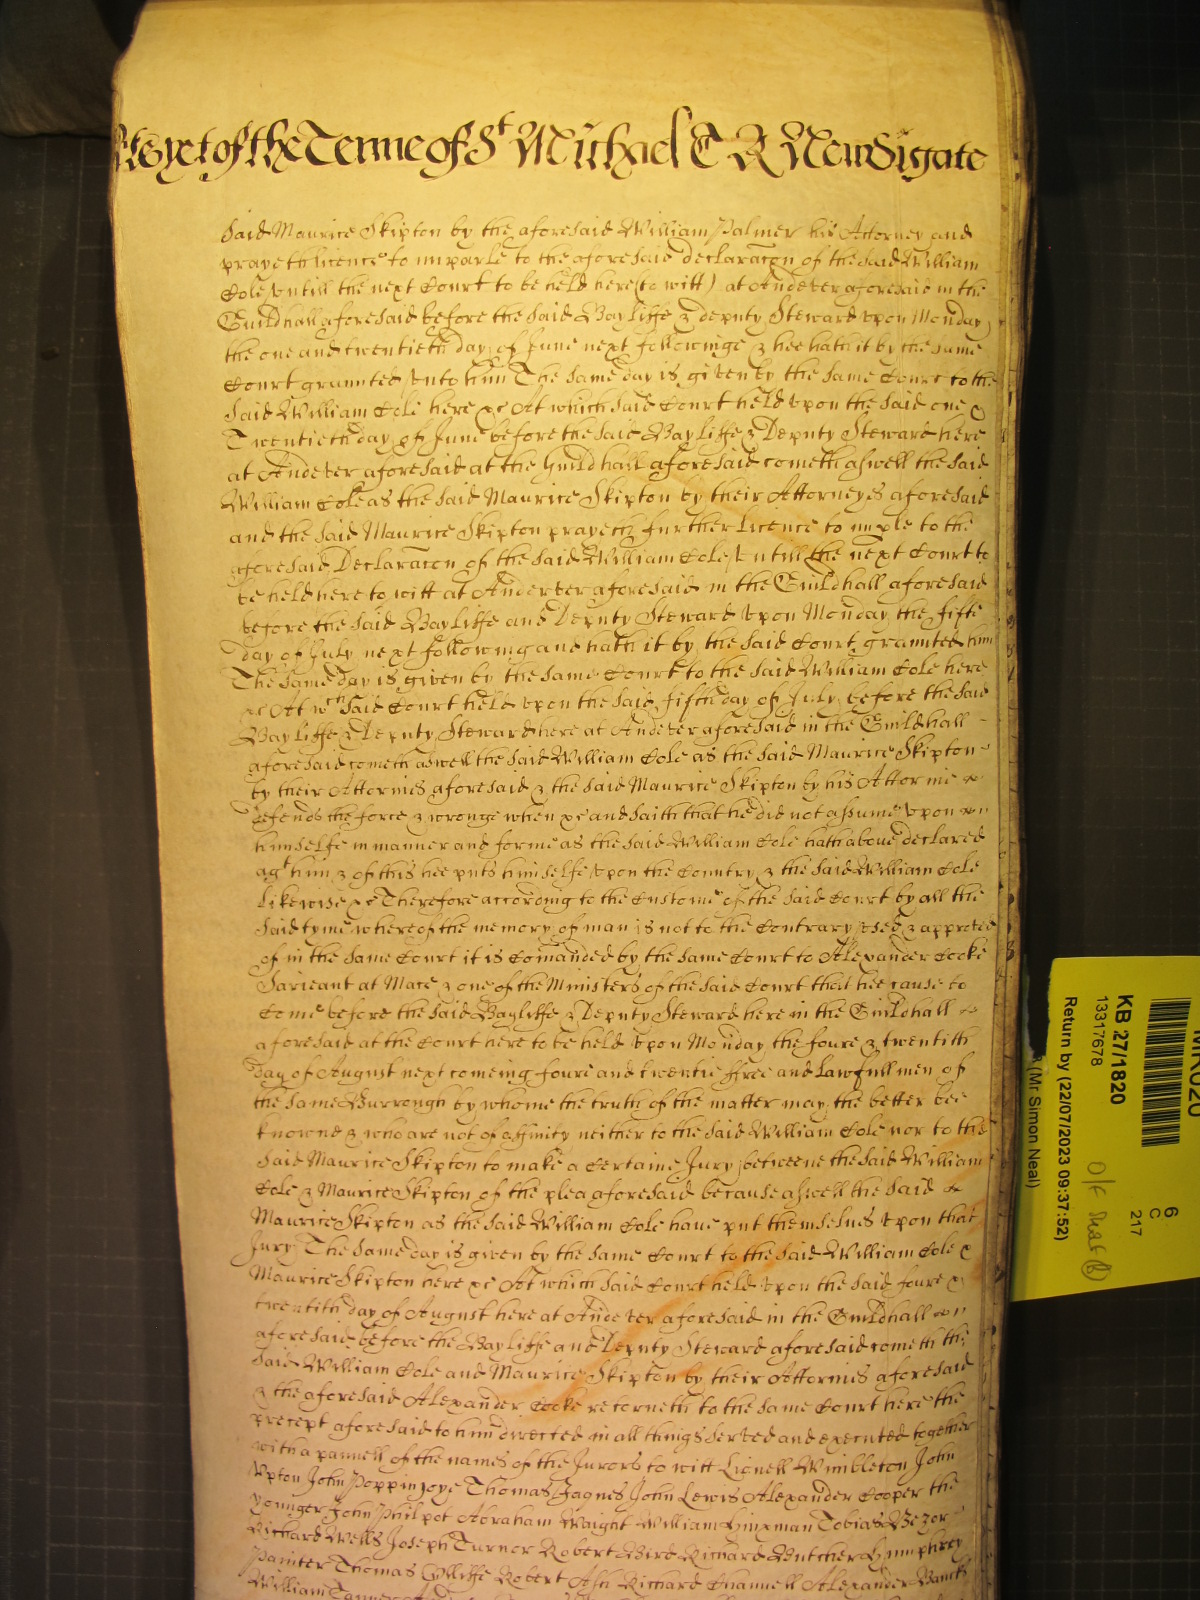 yet of the Terme of St Michael C R Newdigate
said Maurice Skipton by the aforesaid William Palmer his Attorney and
prayeth licence to imparle to the aforesaid declaracon of the said William
Cole untill the next Court to be held here (to witt) at Andever aforesaid in the
Guildhall aforesaid before the said Bayliffe & deputy Steward upon Monday
the one and twentieth day of June next followinge & hee hath it by the same
Court graunted unto him The same day is given by the same Court to the
said William Cole here &c At which said Court held upon the said one &
Twentieth day of June before the said Bayliffe & Deputy Steward here
at Andever aforesaid at the Guildhall aforesaid cometh aswell the said
William Cole as the said Maurice Skipton by their Attorneyes aforesaid
and the said Maurice Skipton prayeth further Licence to imple to the
aforesaid Declaracon of the said William Cole untill the next Court to
be held here to witt at Andever aforesaid in the Guildhall aforesaid
before the said Bayliffe and Deputy Steward upon Monday the fifte
day of July next following and hath it by the said Court graunted him
The same day is given by the same Court to the said William Cole here
&c At wch said Court held upon the said fifth day of July before the said
Bayliffe & Deputy Steward here at Andever aforesaid in the Guildhall
aforesaid cometh aswell the said William Cole as the said Maurice Skipton
by their Attornies aforesaid & the said Maurice Skipton by his Attornie
defends the force & wronge when &c and saith that he did not assume upon
himselfe in manner and forme as the said William Cole hath above declared
agt him & of this hee puts himselfe upon the Country & the said William Cole
likewise &c Therefore according to the Custome of the said Court by all the
said tyme whereof the memory of man is not to the Contrary used & approved
of in the same Court it is Comanded by the same Court to Alexander Cocke
Sarieant at Mace & one of the Ministers of the said Court that hee cause to
Come before the said Bayliffe & Deputy Steward here in the Guildhall
aforesaid at the Court here to be held upon Monday the foure & twentith
day of August next comeing foure and twentie ffree and Lawfull men of
the same Burrough by whome the truth of the matter may the better bee
knowne & who are not of affinity neither to the said William Cole nor to the
said Maurice Skipton to make a Certaine Jury betweene the said William
Cole & Maurice Skipton of the plea aforesaid because aswell the said
Maurice Skipton as the said William Cole have put themselves upon that
Jury The same day is given by the same Court to the said William Cole &
Maurice Skipton here &c At which said Court held upon the said foure &
twentith day of August here at Andever aforesaid in the Guildhall
aforesaid before the Bayliffe and Deputy Steward aforesaid cometh the
said William Cole and Maurice Skipton by their Attornies aforesaid
& the aforesaid Alexander Cocke retorneth to the same Court here the
precept aforesaid to him directed in all things served and executed together
with a pannell of the names of the Jurors to witt Lionell Wimbleton John
Upton John Poppinjoye Thomas Jaques John Lewis Alexander Cooper the
younger John Philpot Abraham Waight William Hinxman Tobias
Richard Wells Joseph Turnor Robert Bird Richard Butcher Humphrey
Painter Thomas Robert Ash Richard Channell Alexander
William
MR020
KB 27/1820
13317678
Return by (22/07/2023 09:37:52)
(Mr Simon Neal)
6
C
217